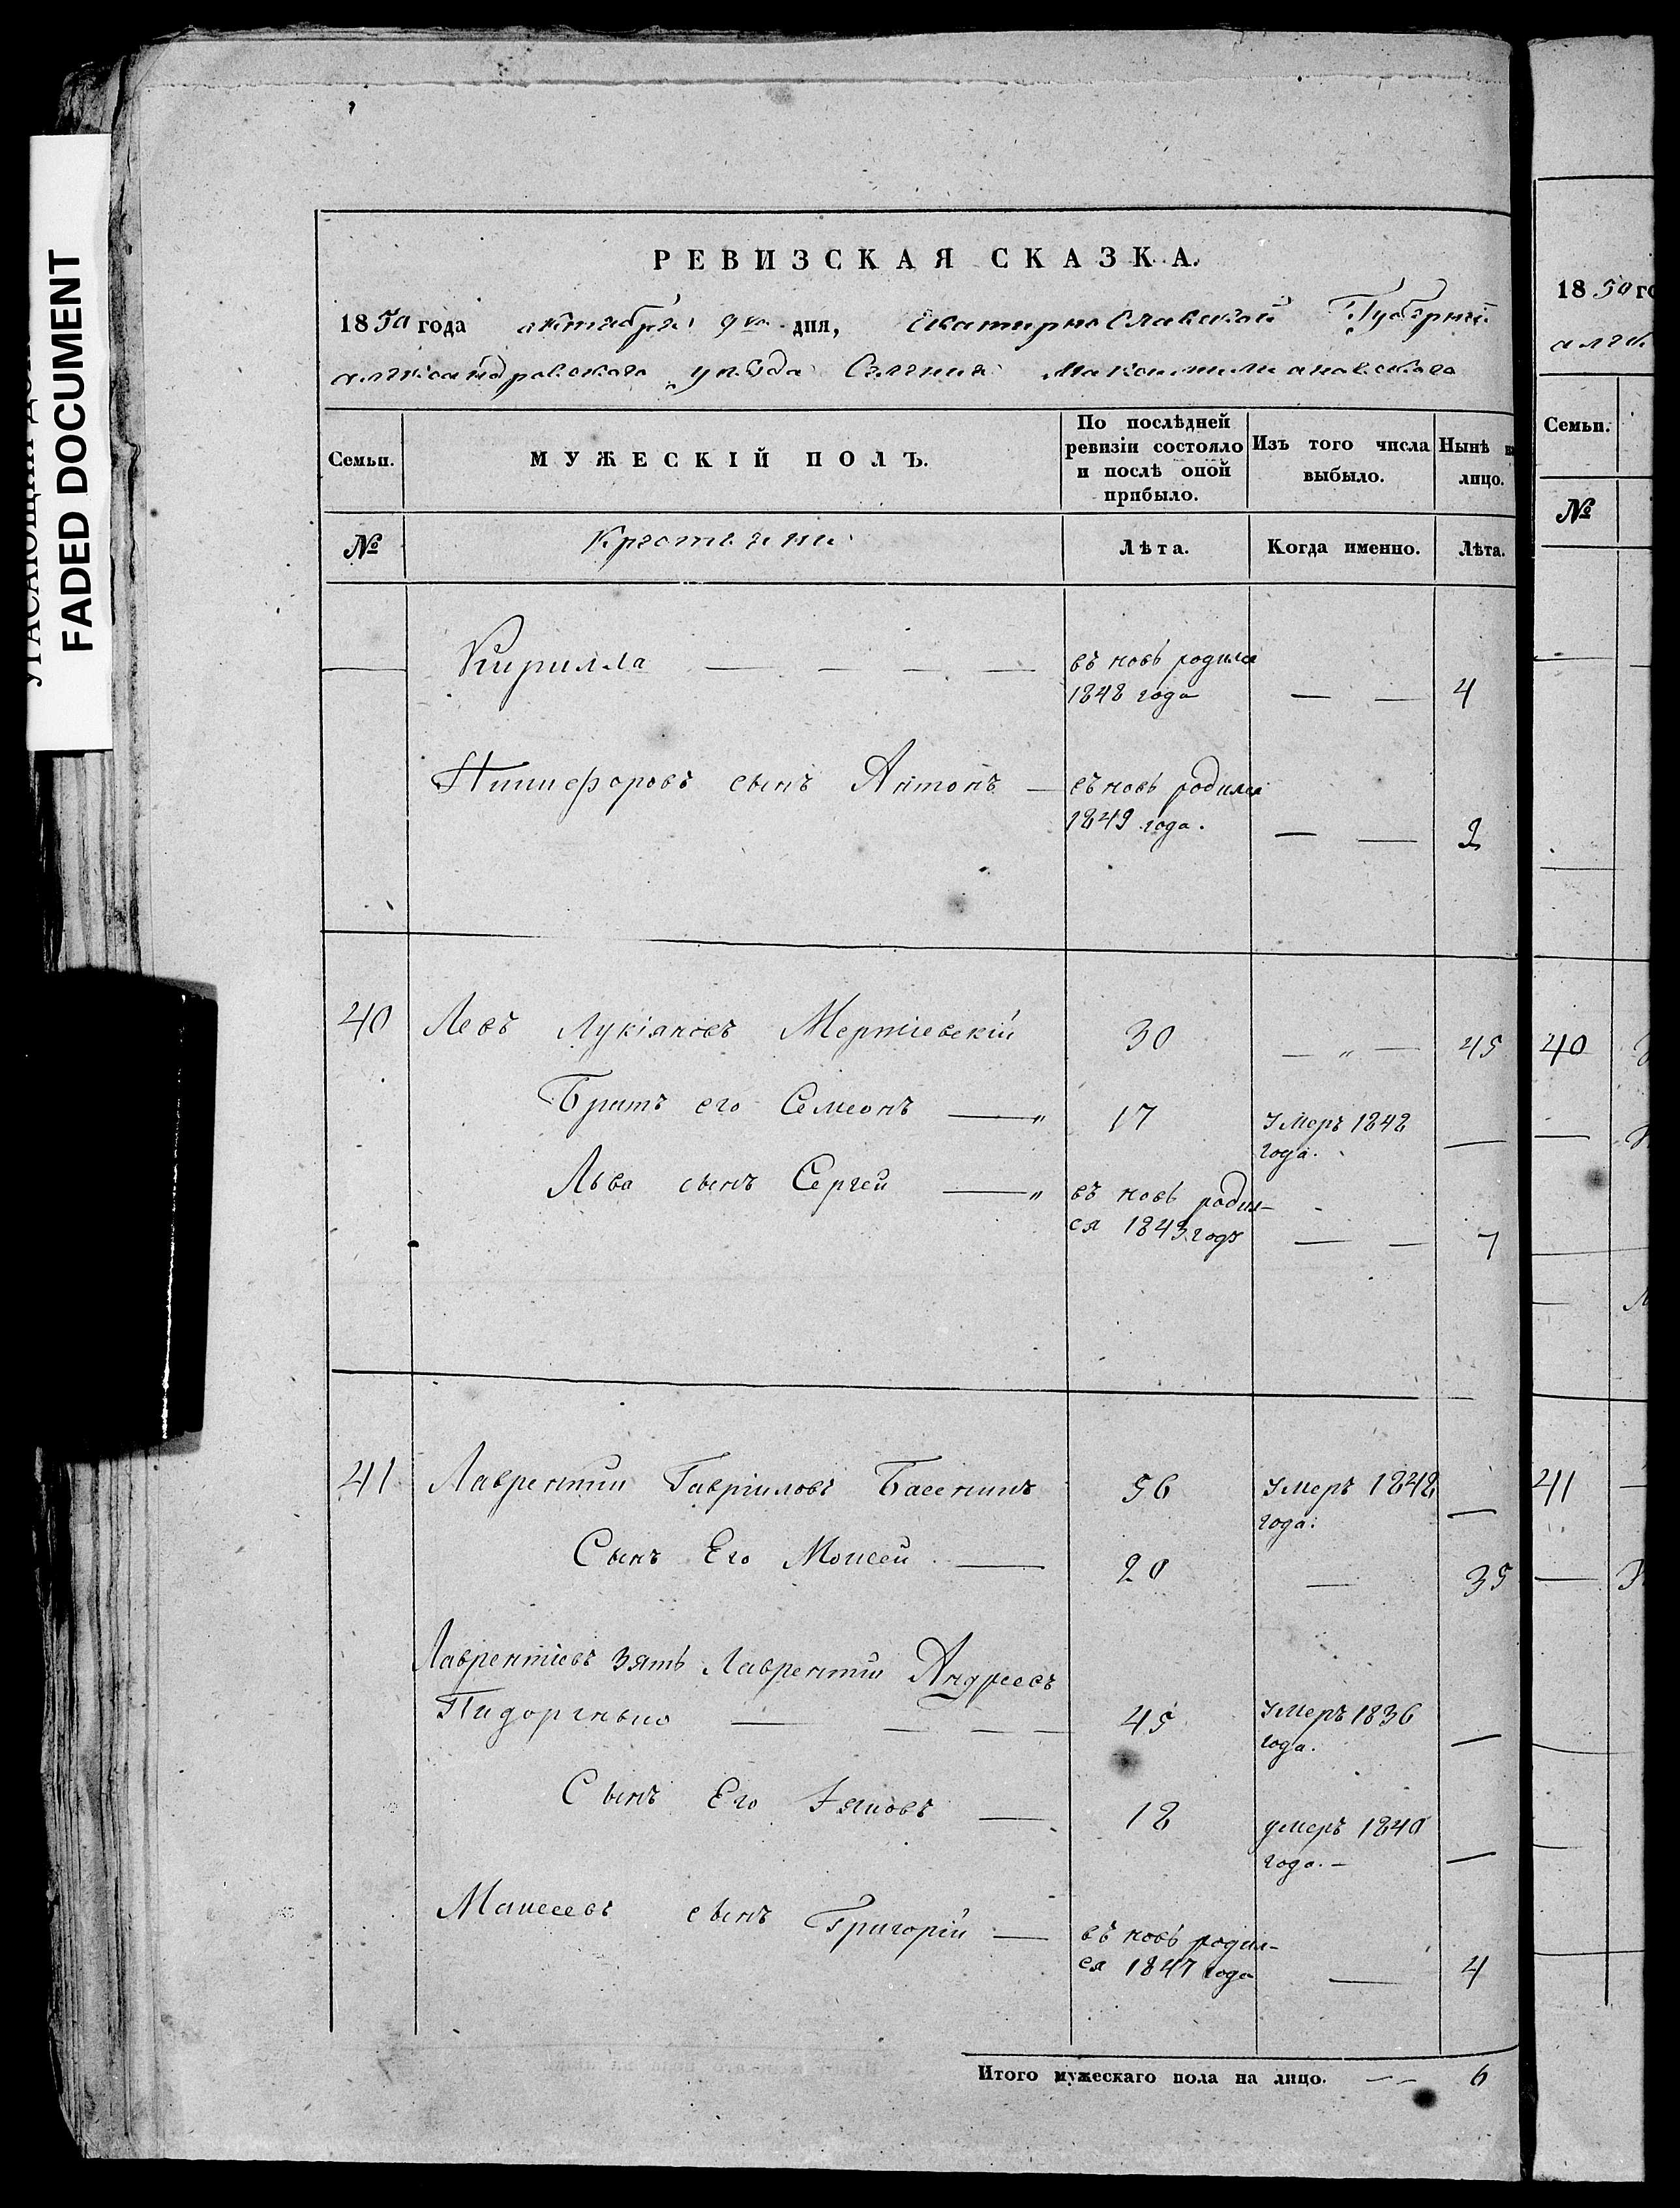 FADED DOCUMENT
РЕВИЗСКАЯ СКАЗКА.
1850 года октября 9го дня, Екатеринославской Губерніи
александровского уезда Селения Максимилиановского
Семьи.
МУЖЕСКІЙ ПОЛЪ.
По послѣдней ревизіи состояло и послѣ оной прибыло.
Изъ того числа выбыло.
Нынѣ на лицо.
№
Крестьяни
Лѣта.
Когда именно.
Лѣта.
Кирилла — — — — въ новь родился
1848 года — — 4
Никифоровъ сынъ Антонъ — въ новь родился
1849 года. — — 2
40 Левъ Лукіяновъ 30 — „ — 45
Братъ его Семеонъ — „ 17 Умеръ 1842
года. —
Льва сынъ Сергей — „ въ новь родил-
ся 1843 годъ — — 7
41 Лаврентий Гавриловъ 56 Умеръ 1842
года. —
Сынъ Его Моисей — 20 — 35
Лаврентіевъ зять Лаврентий Андреевъ
— — — — 45 Умеръ 1836
года. —
Сынъ Его — 18 умеръ 1840
года. —
Моисеевъ сынъ Григорій — въ новь родил-
ся 1847 года — 4
Итого мужескаго пола на лицо. — — 6
1850 го
Семьи.
№
40
41